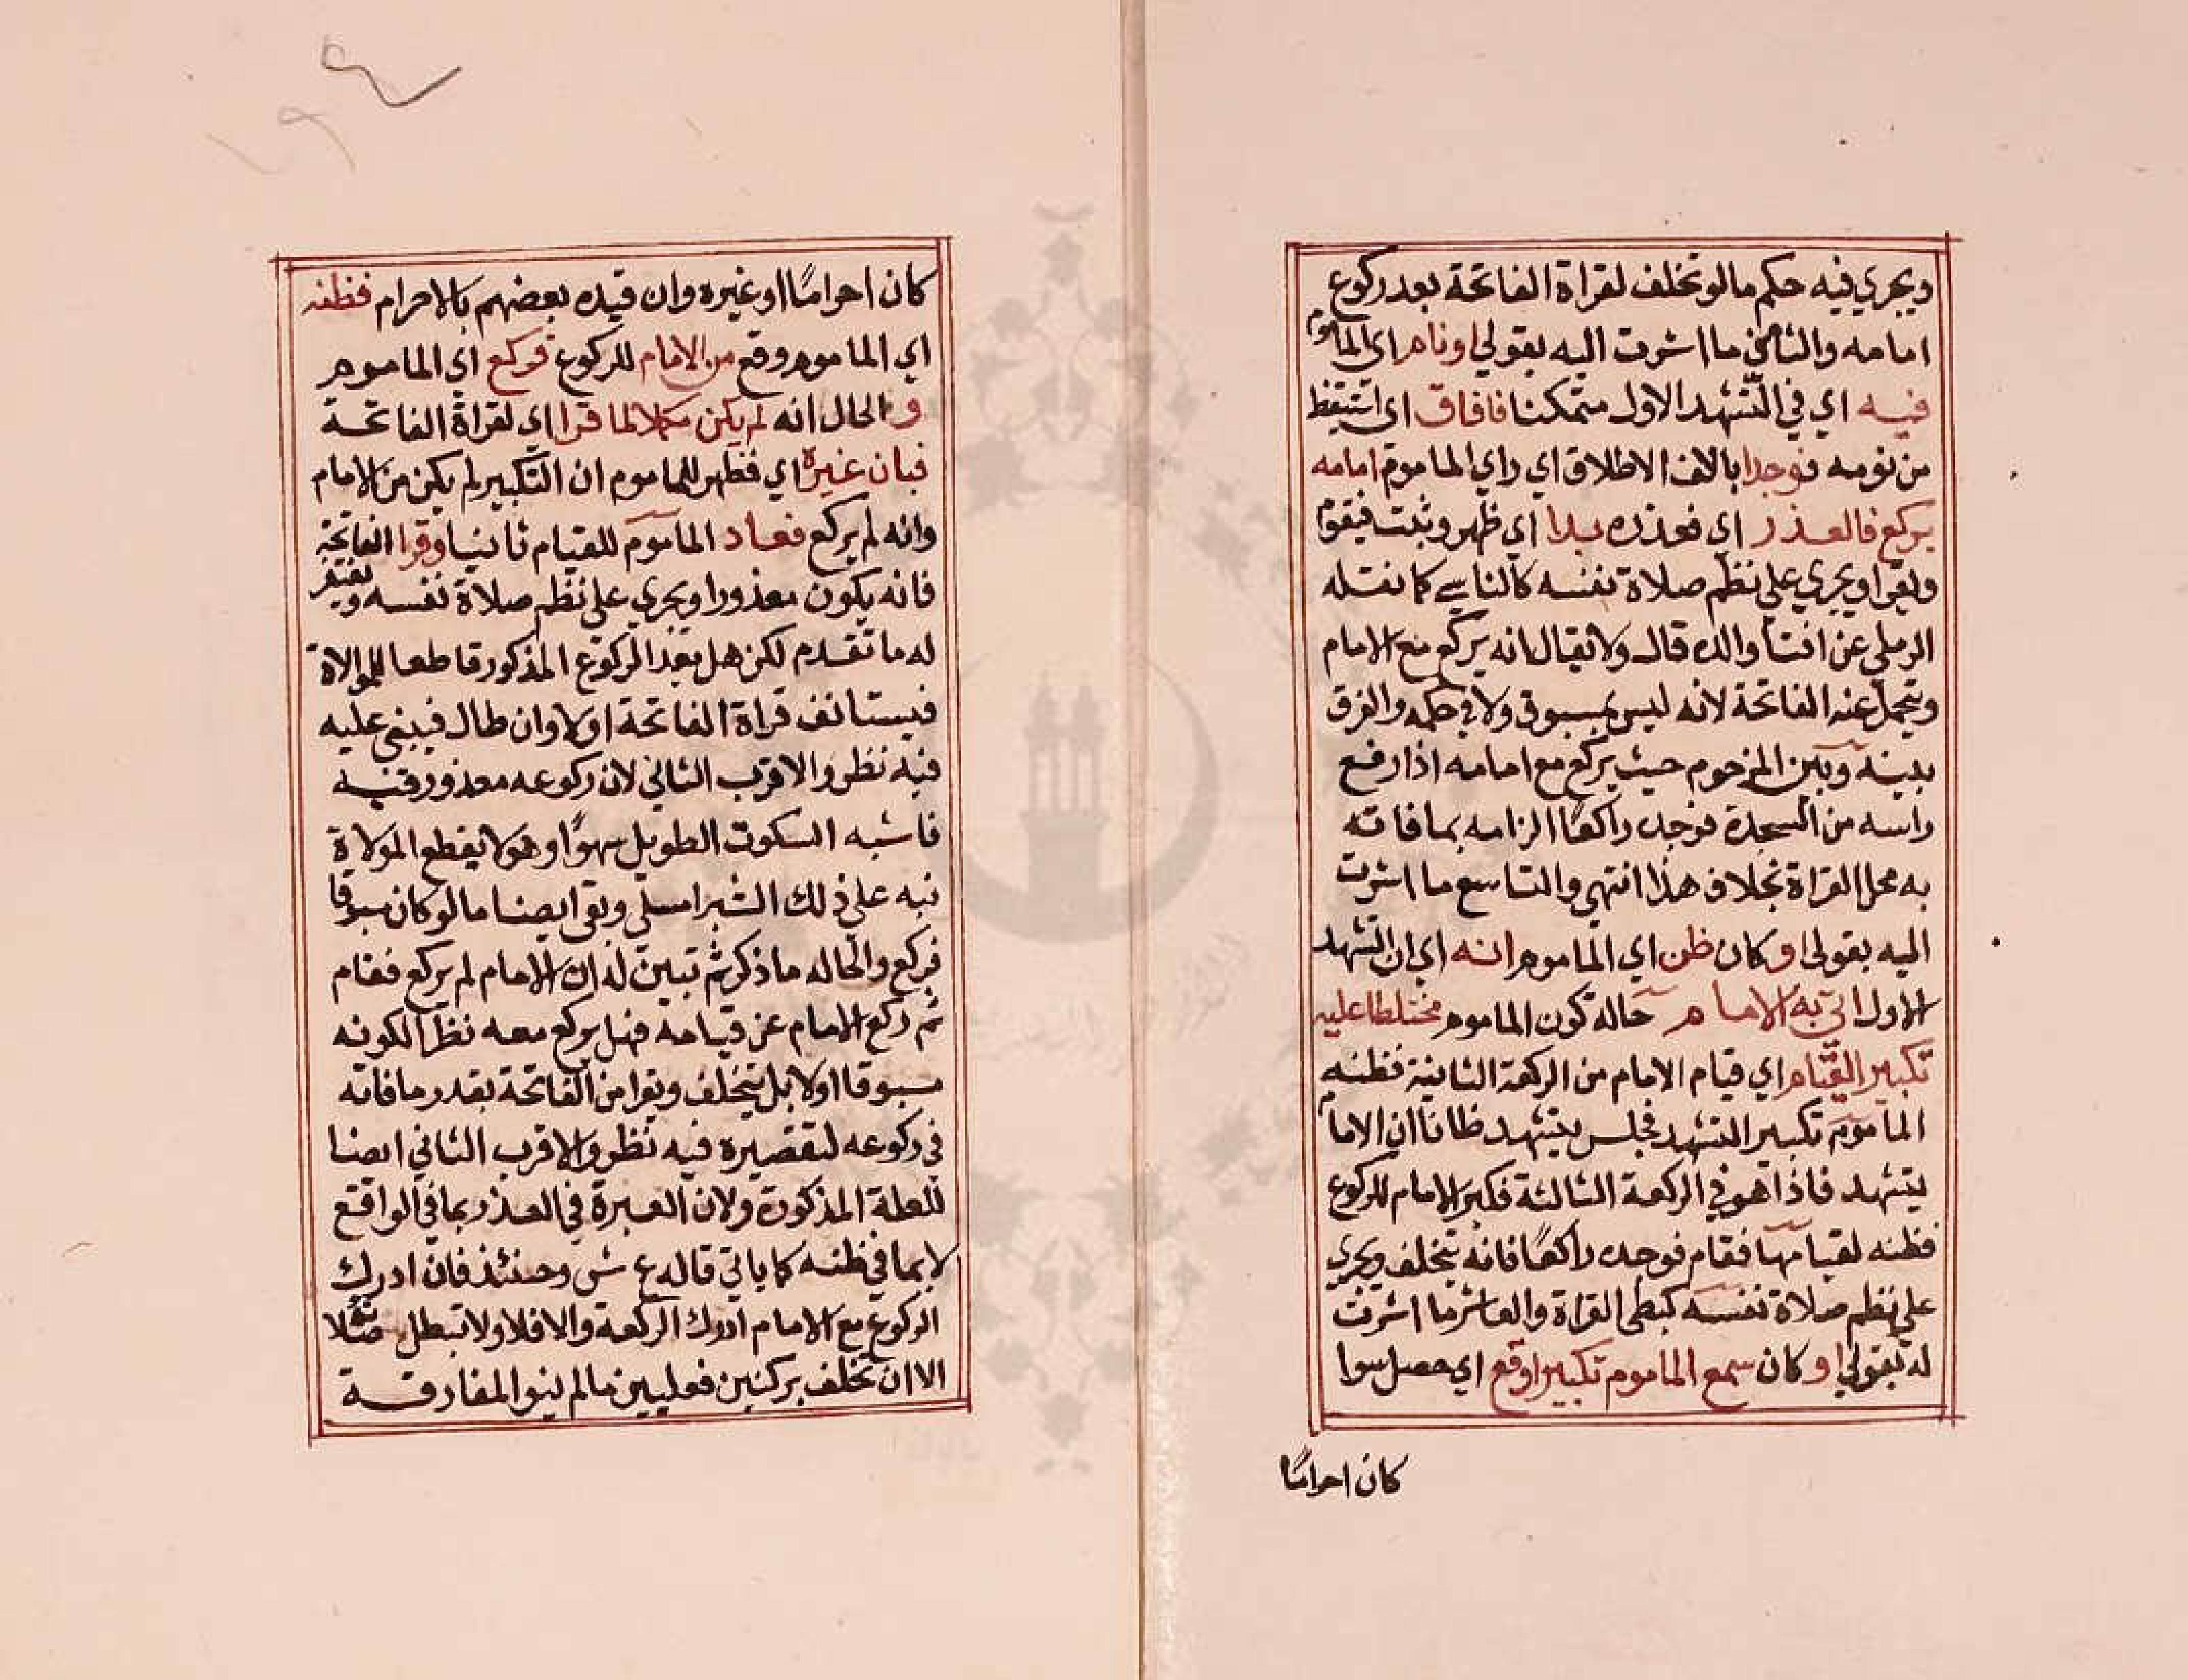 ويجري فيه حكم ما لو تخلف لقراة الفاتحة بعد ركوع
امامه والثامن ما اشرت اليه بقولي او نام اي الماموم
فيه اي في التشهد الاول متمكنا فافاق اي استيقظ
من نومه فوجدا بالف الاطلاق اي راي الماموم امامه
يركع فالعذر اي فعذره بدا اي ظهر وثبت فيقوم
ويقرا ويجري على نظم صلاة نفسه كالناسي كما نقله
الرملي عن افتا والده قال ولا يقال انه يركع مع الامام
ويتحمل عنه الفاتحة لانه ليس بمسبوق ولا في حكمه والفرق
بدينه وبين المزحوم حيث يركع مع امامه اذا رفع
راسه من السجدة فوجده راكعا الزامه بما فاته
به محل القراة بخلاف هذا انتهى والتاسع ما اشرت
اليه بقولي او كان ظن اي الماموم انه اي ان التشهد
الاول اتي به الامام حالة كون الماموم مختلطا عليه
تكبير القيام اي قيام الامام من الركعة الثانية فظنه
الماموم تكبير التشهد فجلس يتشهد ظانا ان الامام
يتشهد فاذا هو في الركعة الثالثة فكبر الامام للركوع
فظنه لقيامها فقام فوجده راكعًا فانه يتخلف ويجري
على نظم صلاة نفسه كبطي القراة والعاشر ما اشرت
له بقولي او كان سمع الماموم تكبيرا وقع اي حصل سوا
كان احرامًا
كان احرامًا او غيره وان قيده بعضهم بالاحرام فظنه
اي الماموم وقع من الامام للركوع فركع اي الماموم
و الحال انه لم يكن مكملا لما قرا اي لقراة الفاتحة
فبان غيره اي فظهر للماموم ان التكبير لم يكن من الامام
وانه لم يركع فعاد الماموم للقيام ثانيا وقرا الفاتحة
فانه يكون معذورا ويجري على نظم صلاة نفسه ويغتفر
له ما تقدم لكن هل يعد الركوع المذكور قاطعا للموالاة
فيستانف قراة الفاتحة اولا وان طال فيبني عليه
فيه نظر والاقرب الثاني لان ركوعه معذور فيه
فاشبه السكوت الطويل سهوًا وهو لا يقطع المولاة
نبه على ذلك الشبراملسي وبقي ايضا ما لو كان مسبوقا
فركع والحاله ما ذكر ثم تبين له ان الامام لم يركع فقام
ثم ركع الامام عن قيامه فهل يركع معه نظرا لكونه
مسبوقا اولا بل يتخلف ويقرا من الفاتحة بقدر ما فاته
في ركوعه لتقصيره فيه نظر والاقرب الثاني ايضا
للعلة المذكورة ولان العبرة في العذر بما في الواقع
لا بما في ظنه كما ياتي قاله ع ش وحينئذ فان ادرك
الركوع مع الامام ادرك الركعة والا فلا ولا تبطل صلاته
الا ان تخلف بركنين فعليين ما لم ينو المفارقة